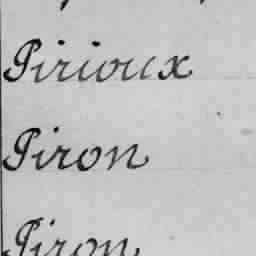 Pirioux
Piron
Piron